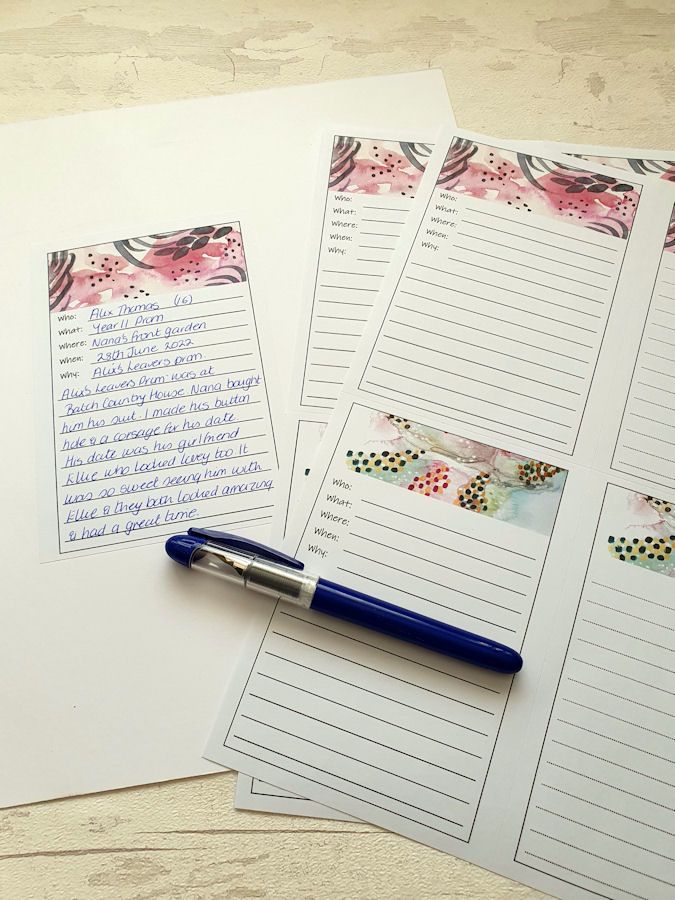 Who: Alix Thomas (16)
What: Year 11 Prom
Where: Nana's front garden
When: 28th June 2022
Why: Alix's Leavers prom.
Alix's Leavers Prom was at
Batch Country House Nana bought
him his suit. I made his button
hole & a corsage for his date.
His date was his girlfriend
Ellie who looked lovey too. It
was so sweet seeing him with
Ellie & they both looked amazing
& had a great time.
Who:
What:
Where:
When:
Why:
Who:
What:
Where:
When:
Why:
Who:
What:
Where:
When:
Why: